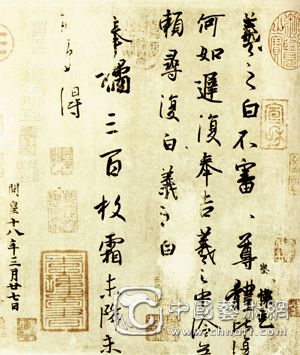 羲之白不審、尊體比復
何如遲復奉告羲之中冷無
賴尋復白羲之白
奉橘三百枚霜未降未
可多得
開皇十八年三月廿七日
中國藝術網
www.chnart.com